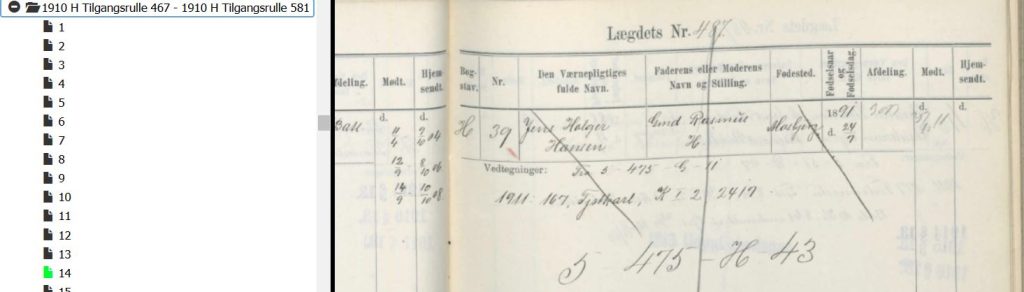 1910 H Tilgangsrulle 467 - 1910 H Tilgangsrulle 581
1
2
3
4
5
6
7
8
9
10
11
12
13
14
15
Lægdets Nr. 487.
fdeling. Mødt. Hjem-sendt.
Bog-stav. Nr. Den Værnepligtiges fulde Navn. Faderens eller Moderens Navn og Stilling. Fødested. Fødselsaar og Fødselsdag. Afdeling. Mødt. Hjem-sendt.
d. d. 1891 d. d.
H 39 Jens Holger Hansen Rasmus H Mosbjerg d. 24/7
12/9 8/10 06
14/9 10/10 08
Vedtegninger: Fra 5 - 475 - G - 11
1911 167, K I 2 2417
5 - 475 - H 43